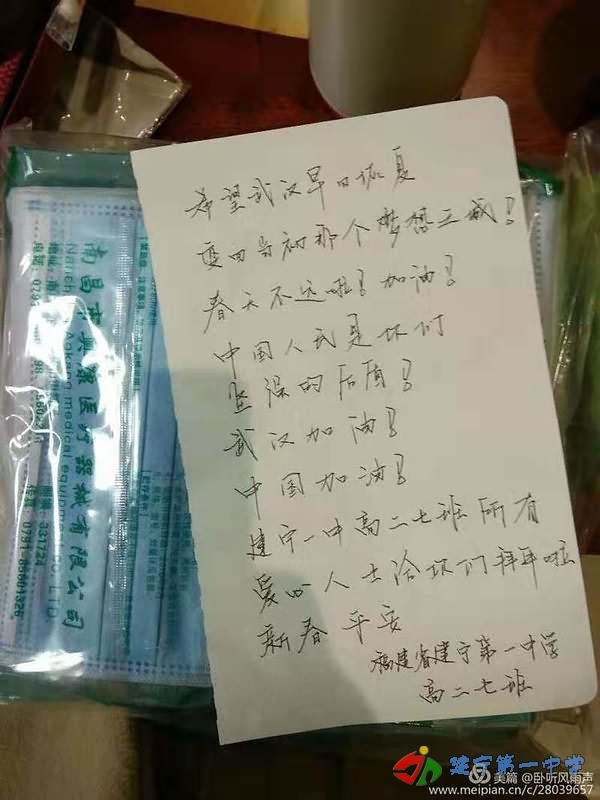 希望武汉早日恢复
变回当初那个梦想之城!
春天不远啦!加油!
中国人民是你们
坚强的后盾!
武汉加油!
中国加油!
建宁一中高二七班所有
爱心人士给你们拜年啦
新春平安
福建省建宁第一中学
高二七班
南昌市奥康医疗器械有限公司
medical equipment co., LTD
3317724
0791-86601326
建宁第一中学
美篇 @卧听风雨声
www.meipian.cn/c/28039657